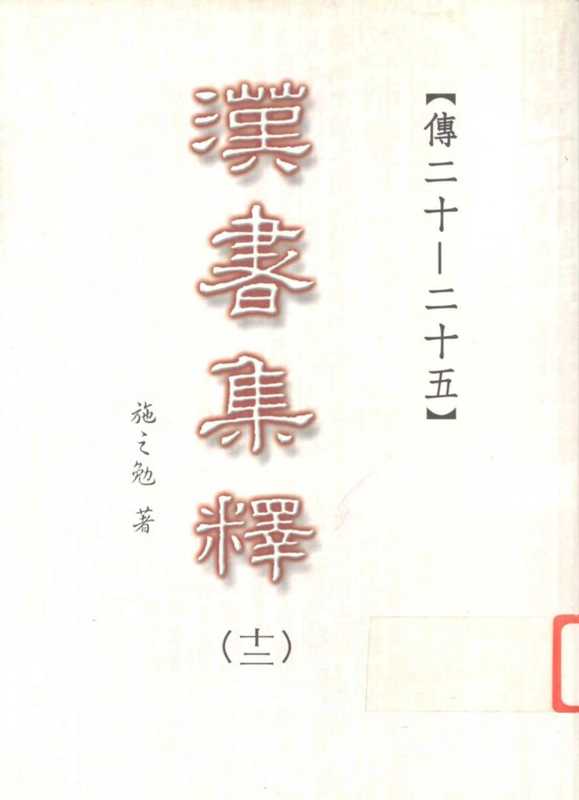 【傳二十—二十五】
漢書集釋
(十二)
施之勉 著